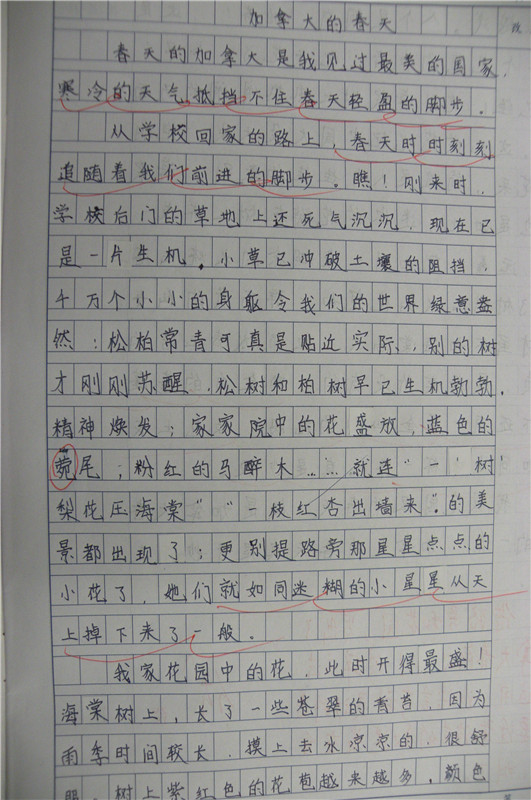 加拿大的春天
春天的加拿大是我见过最美的国家，
寒冷的天气抵挡不住春天轻盈的脚步。
从学校回家的路上，春天时时刻刻
追随着我们前进的脚步。瞧！刚来时，
学校后门的草地上还死气沉沉，现在已
是一片生机。小草已冲破土壤的阻挡，
千万个小小的身躯令我们的世界绿意盎
然；松柏常青可真是贴近实际，别的树
才刚刚苏醒，松树和柏树早已生机勃勃，
精神焕发；家家院中的花盛放，蓝色的
菀尾；粉红的马醉木……就连“一树
梨花压海棠”“一枝红杏出墙来”的美
景都出现了；更别提路旁那星星点点的
小花了，她们就如同迷糊的小星星从天
上掉下来了一般。
我家花园中的花，此时开得最盛！
海棠树上，长了一些苍翠的青苔，因为
雨季时间较长，摸上去冰凉凉的，很舒
服。树上紫红色的花苞越来越多，颜色